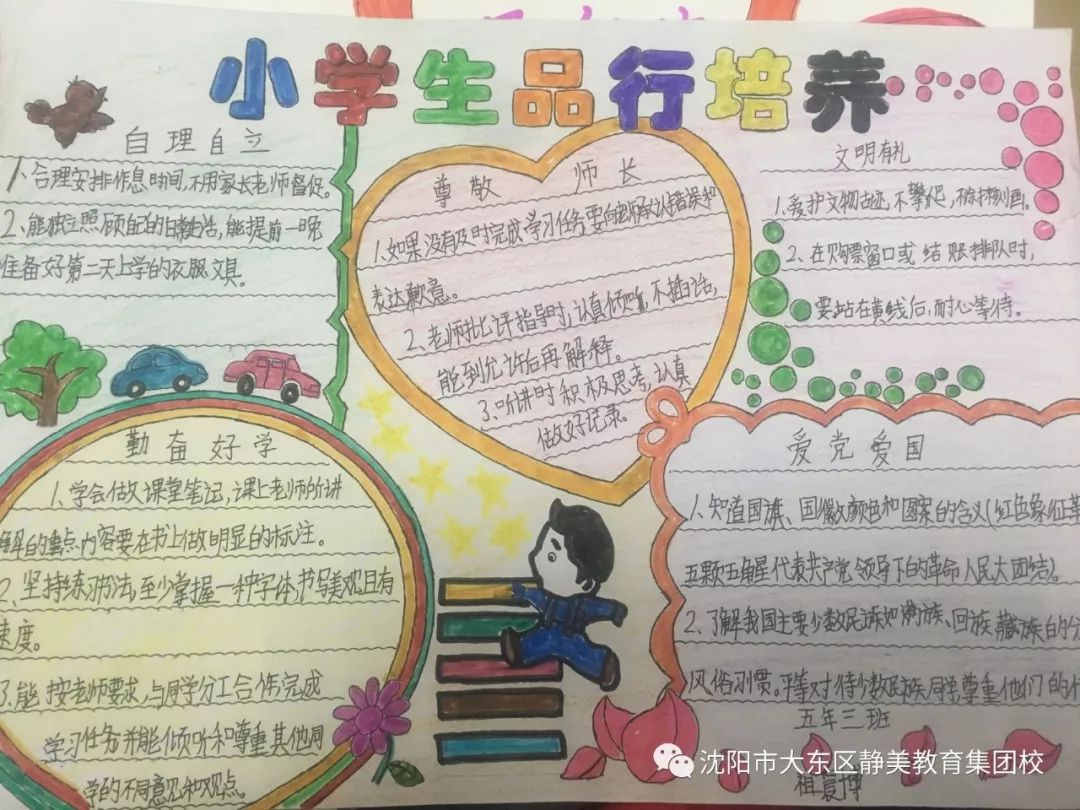 小学生品行培养
自理自立
1、合理安排作息时间,不用家长老师督促。
2、能独立照顾自己的日常生活,能提前一晚
准备好第二天上学的衣服文具。
尊敬 师长
1.如果没有及时完成学习任务要向老师承认错误和
表达歉意。
2、老师批评指导时,认真倾听,不插话,
能到允许后再解释。
3、听讲时积极思考,认真
做好记录。
文明有礼
1.爱护文物古迹,不攀爬,
2、在购票窗口或结账排队时,
要站在黄线后,耐心等待。
勤奋好学
1、学会做课堂笔记,课上老师的讲
解的重点内容要在书上做明显的标注。
2、坚持练习书法,至少掌握一种字体,书写美观且有
速度。
3.能按老师要求,与同学分工合作完成
学习任务并能倾听和尊重其他同
学的不同意见和观点。
爱党爱国
1.知道国旗、国徽颜色和图案的含义(红色象征革
五颗五角星代表共产党领导下的革命人民大团结)。
2.了解我国主要少数民族如满族、回族、藏族的
风俗习惯。平等对待少数民族同学,尊重他们的
五年三班
沈阳市大东区静美教育集团校